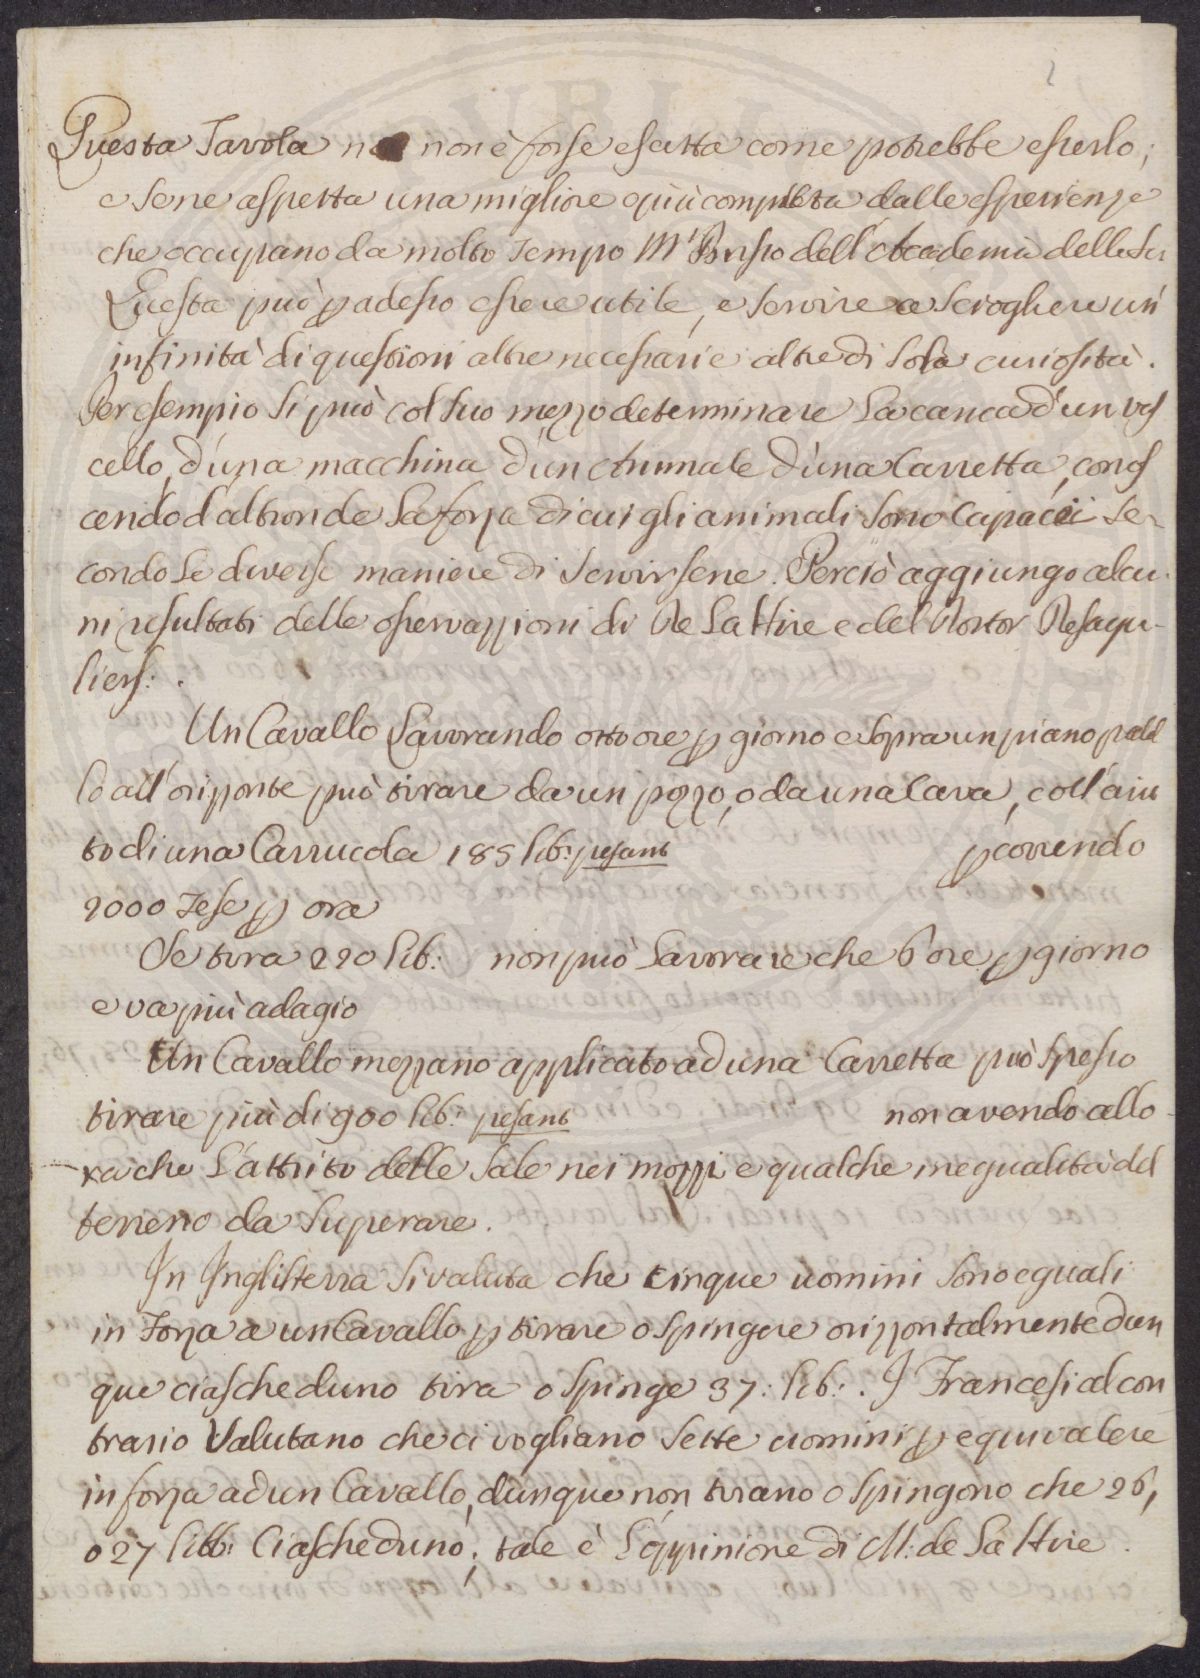 2
Questa Tavola non è forse esatta come potrebbe esserlo;
e se ne aspetta una migliore e più completa dalle esperienze
che occupano da molto tempo Mr Brisso dell'Accademia delle Sci
Questa può p adesso essere utile, e servire a sciogliere un
infinità di questioni altre necessarie altre di sola curiosità.
Per esempio si può col suo mezzo determinare la carica d'un vas
cello, d'una macchina d'un Animale d'una Carretta, conos
cendo d'altronde la forza di cui gli animali sono capaci se-
condo le diverse maniere di servirsene. Perciò aggiungo alcu-
ni resultati delle osservazzioni di De La Hire e del Dottor Desagu-
liers: .
Un Cavallo lavorando otto ore p giorno e sopra un piano paralel
lo all'orizzonte può tirare da un pozzo, o da una Cava, coll'aiu
to di una Carrucola 185 lib: pesant p correndo
2000 Tese p ora
Se tira 220 lib: non può lavorare che 6 ore p giorno
e va più adagio
Un Cavallo mezzano applicato ad una Carretta può spesso
tirare più di 900 lib: pesant non avendo allo-
ra che l'attrito delle sale nei mozzi e qualche inequalità del
terreno da superare.
In Inghilterra si valuta che cinque uomini sono eguali
in forza a un Cavallo p tirare o spingere orizzontalmente dun
que ciascheduno tira o spinge 37: lib: . I Francesi al con
trario valutano che ci vogliano sette uomini p equivalere
in forza ad un Cavallo, dunque non tirano o spingono che 26,
o 27 libb: Ciascheduno; tale è l'oppinione di M: de La Hire.